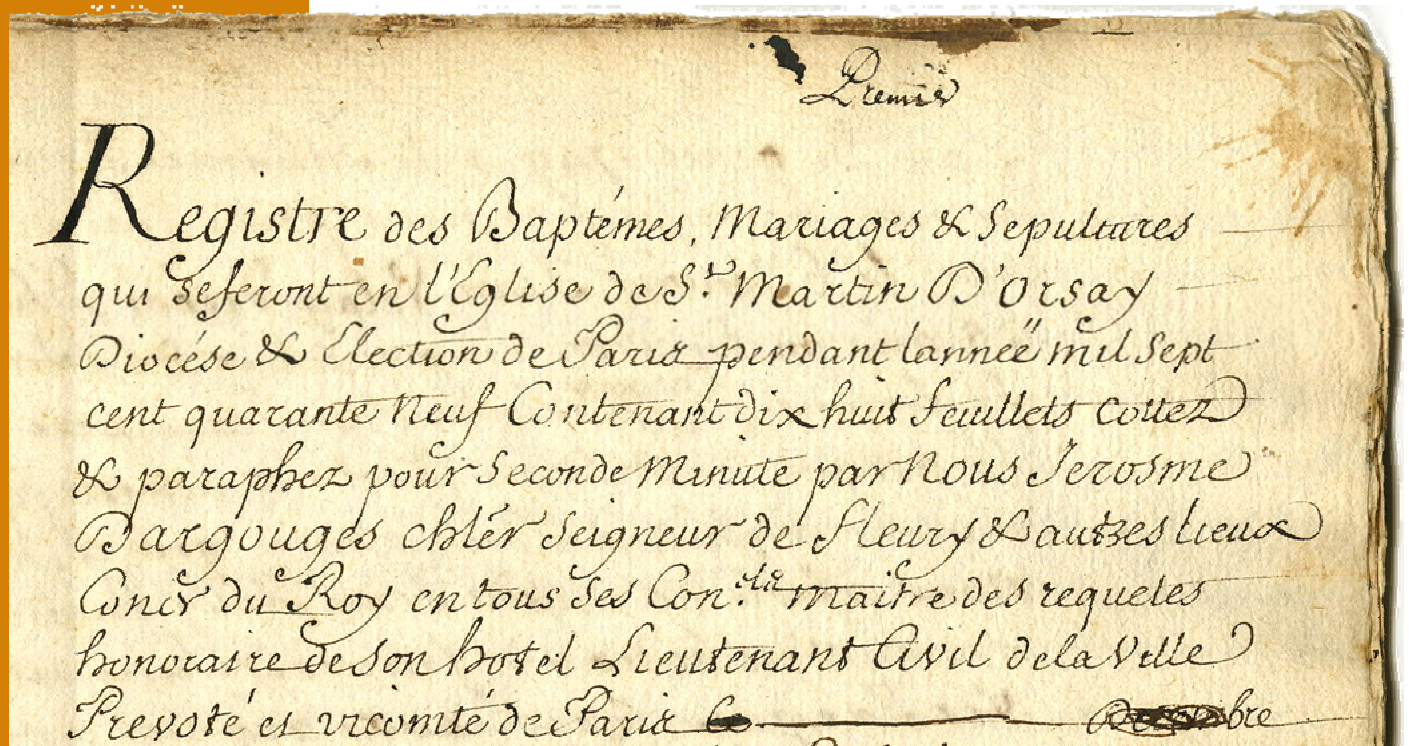 Premier
Registre des Baptémes, Mariages & Sepultures
qui se feront en l'Eglise de St. Martin D'Orsay
Diocése & Election de Paris pendant lanneë mil Sept
cent quarante neuf Contenant dix huit feuillets cottez
& paraphez pour Seconde Minute par Nous Jerosme
Dargouges chlér Seigneur de fleury & autres lieux
Concr du Roy en tous Ses Con.els maitre des requetes
honoraire de Son hotel Lieutenant Civil de la Ville
Prevoté et vicomté de Paris